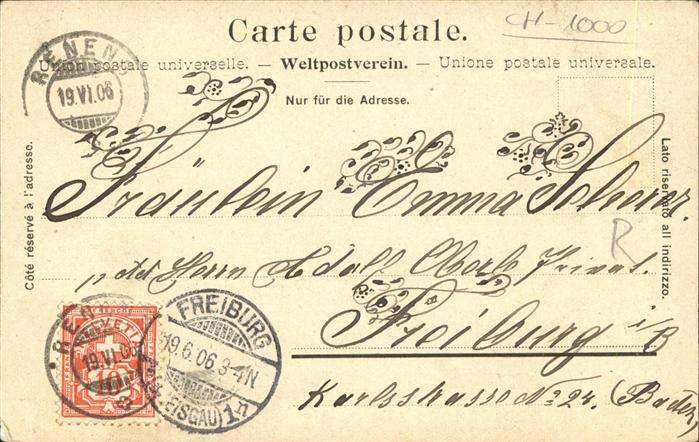 Carte postale.
CH-1000
Union postale universelle. — Weltpostverein. — Unione postale universale.
Nur für die Adresse.
RENENS
19.VI.06
Côté réservé à l'adresse.
Lato riservato all indirizzo.
Fräulein Emma Scherer.
Herrn Adolf Oberle Privat.
R
Freiburg i/B
Karlsstrasse No 24. (Baden)
RENENS
19.VI.06
FREIBURG
19.6.06 3-4N
(BREISGAU) 1n